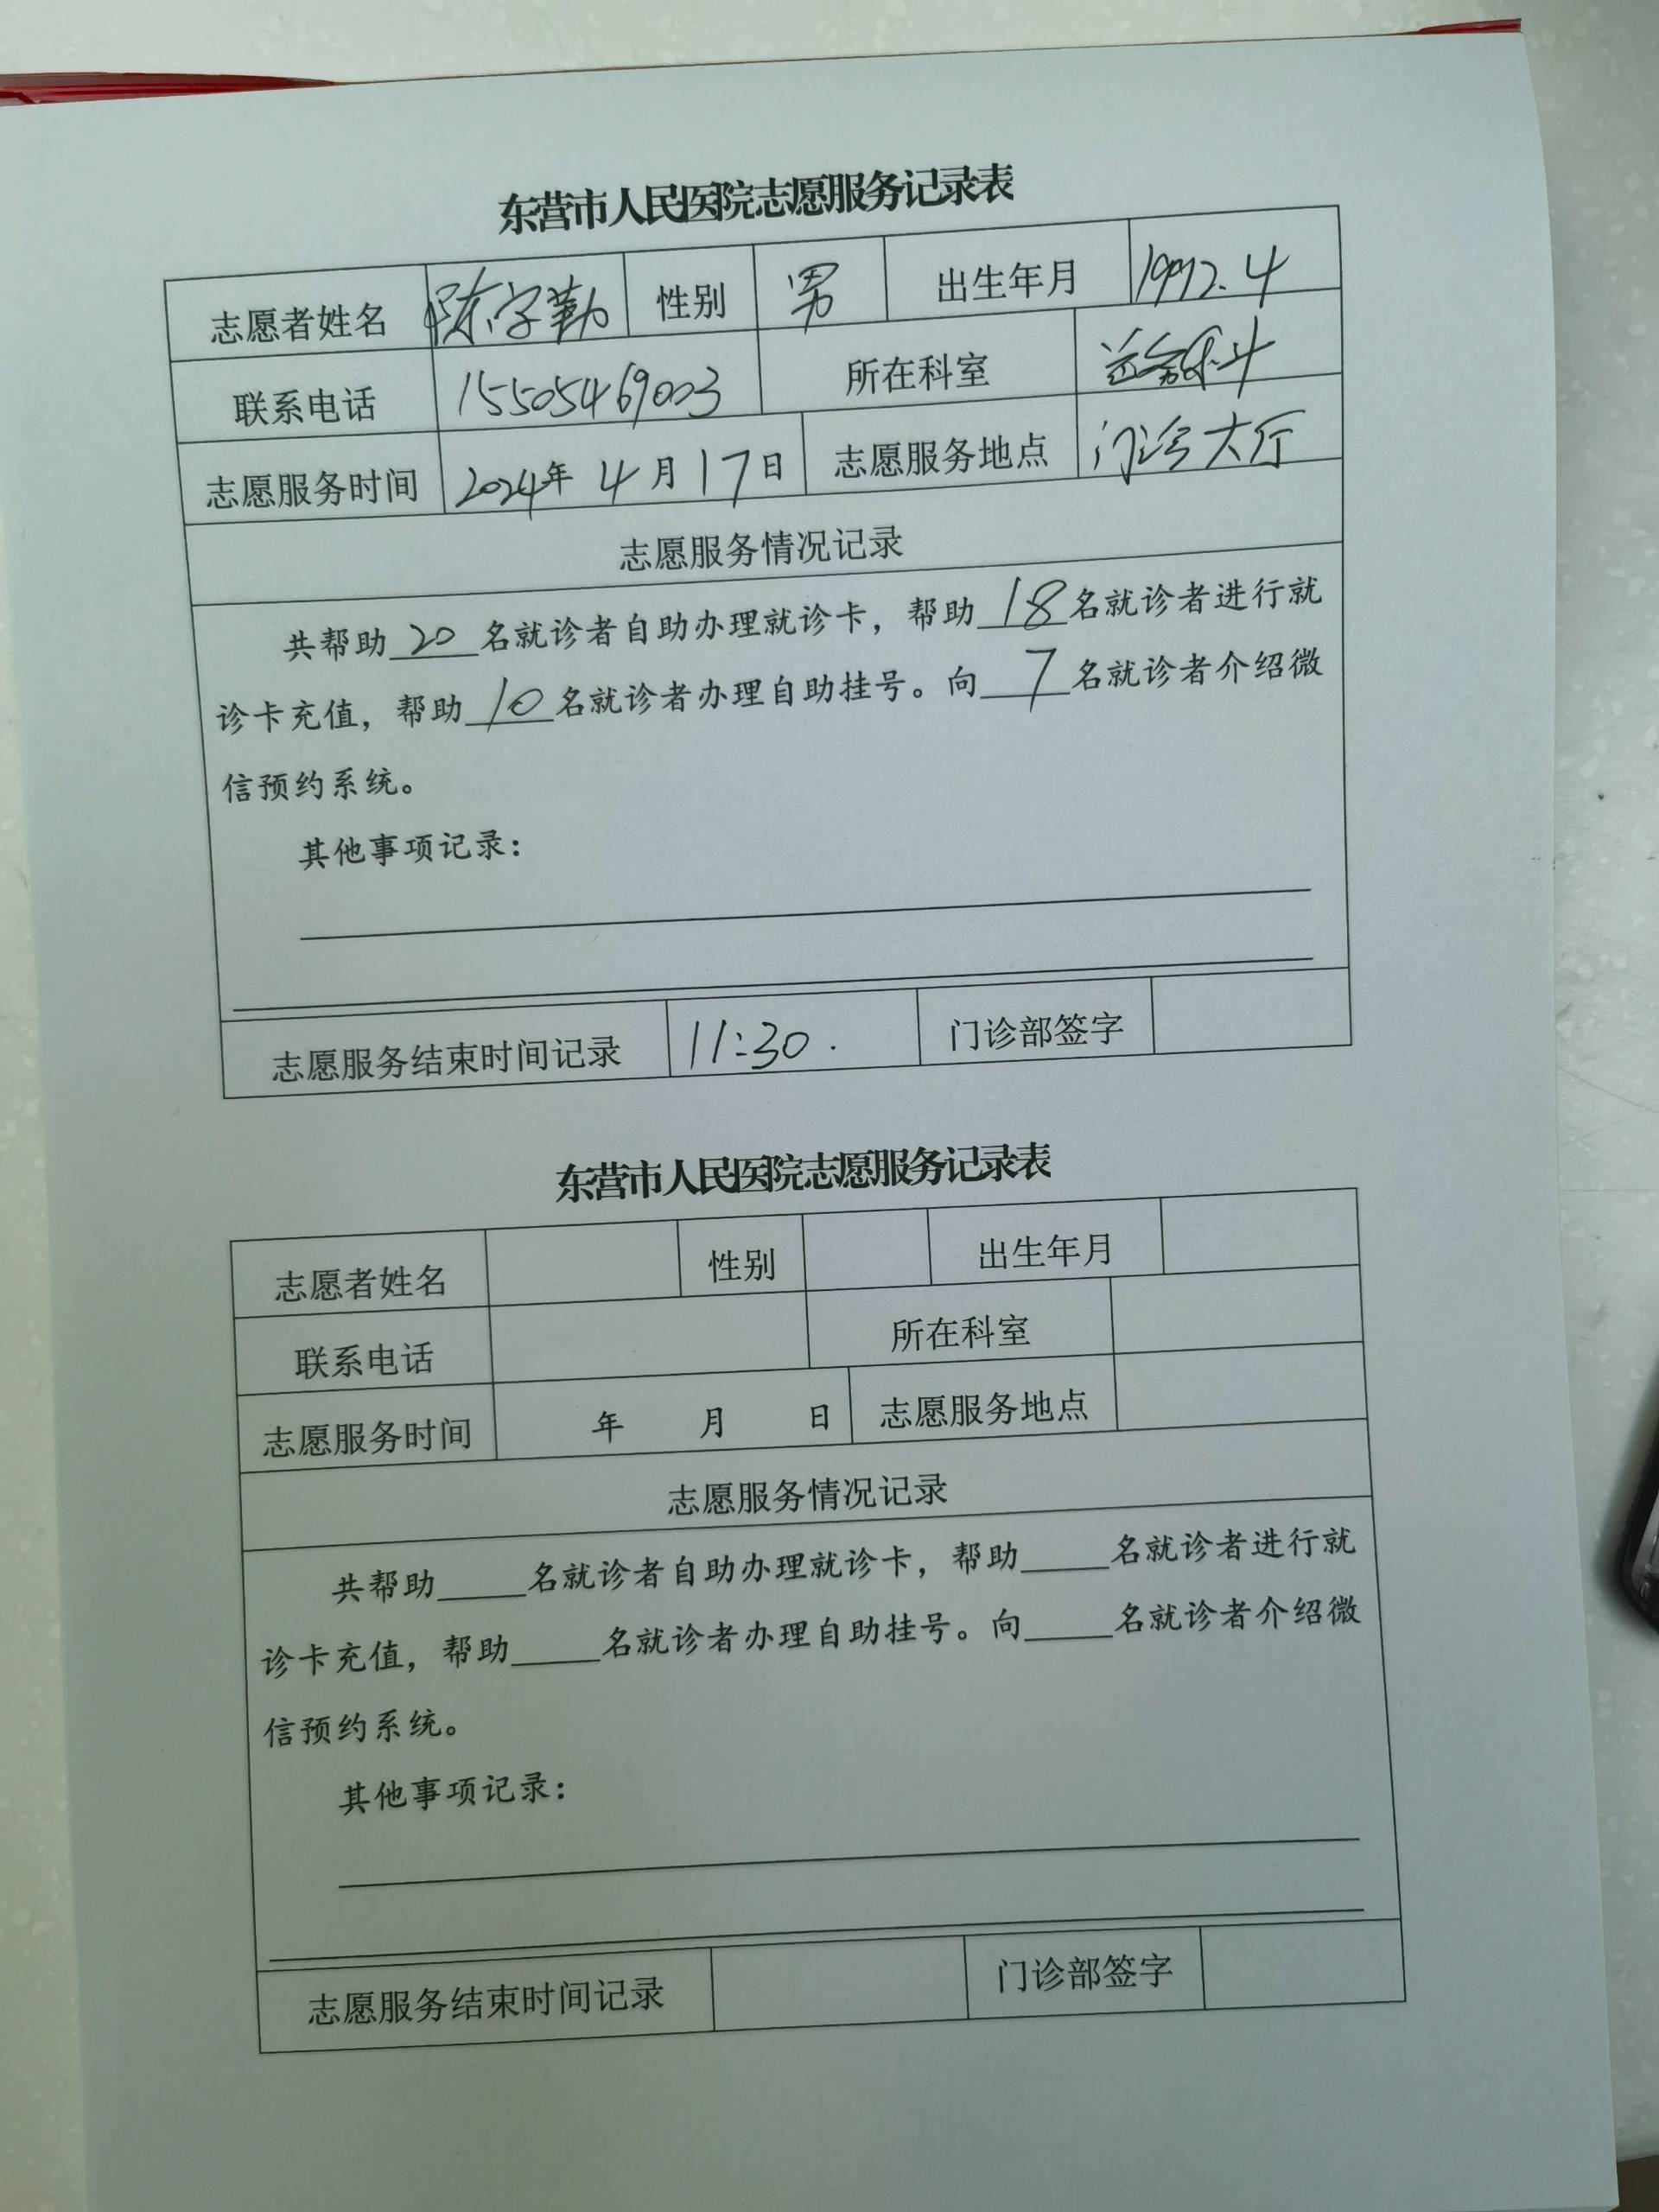 东营市人民医院志愿服务记录表
志愿者姓名 陈字勤 性别 男 出生年月 1992.4
联系电话 15505469003 所在科室
志愿服务时间 2024年 4月17日 志愿服务地点 门诊大厅
志愿服务情况记录
共帮助 20 名就诊者自助办理就诊卡，帮助 18 名就诊者进行就
诊卡充值，帮助 10 名就诊者办理自助挂号。向 7 名就诊者介绍微
信预约系统。
其他事项记录：
志愿服务结束时间记录 11:30. 门诊部签字
东营市人民医院志愿服务记录表
志愿者姓名 性别 出生年月
联系电话 所在科室
志愿服务时间 年 月 日 志愿服务地点
志愿服务情况记录
共帮助_____名就诊者自助办理就诊卡，帮助_____名就诊者进行就
诊卡充值，帮助_____名就诊者办理自助挂号。向_____名就诊者介绍微
信预约系统。
其他事项记录：
志愿服务结束时间记录 门诊部签字